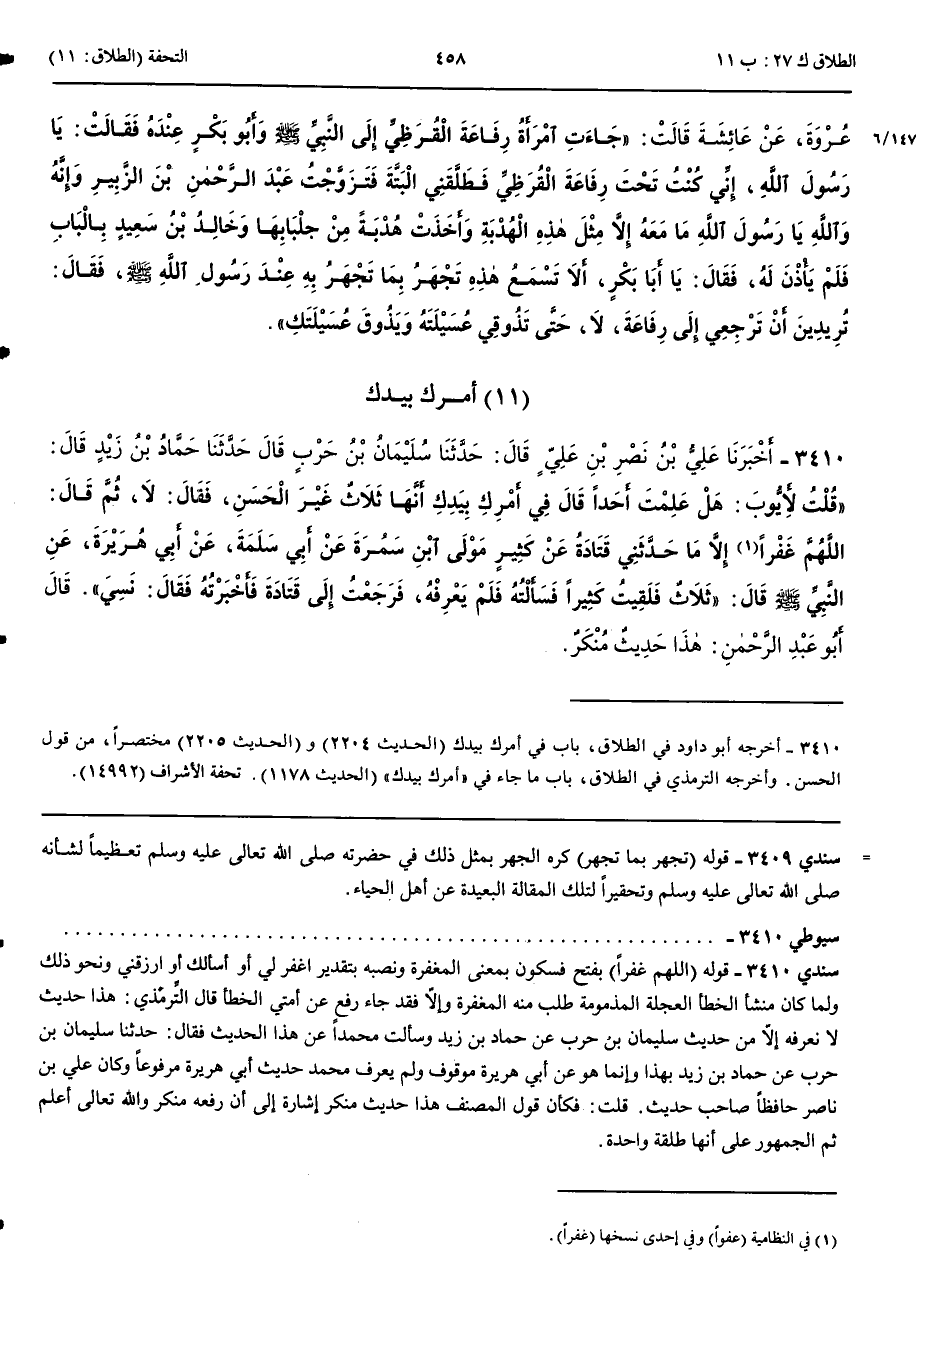 الطلاق ك ٢٧: ب ١١
٤٥٨
التحفة (الطلاق: ١١)
٦/١٤٧
عُرْوَةَ، عَنْ عَائِشَةَ قَالَتْ: «جَاءَتِ ٱمْرَأَةُ رِفَاعَةَ الْقُرَظِيِّ إِلَى النَّبِيِّ ﷺ وَأَبُو بَكْرٍ عِنْدَهُ فَقَالَتْ: يَا
رَسُولَ ٱللَّهِ، إِنِّي كُنْتُ تَحْتَ رِفَاعَةَ الْقُرَظِيِّ فَطَلَّقَنِي الْبَتَّةَ فَتَزَوَّجْتُ عَبْدَ الرَّحْمٰنِ بْنَ الزَّبِيرِ وَإِنَّهُ
وَٱللَّهِ يَا رَسُولَ ٱللَّهِ مَا مَعَهُ إِلَّا مِثْلَ هٰذِهِ الْهُدْبَةِ وَأَخَذَتْ هُدْبَةً مِنْ جِلْبَابِهَا وَخَالِدُ بْنُ سَعِيدٍ بِالْبَابِ
فَلَمْ يَأْذَنْ لَهُ، فَقَالَ: يَا أَبَا بَكْرٍ، أَلَا تَسْمَعُ هٰذِهِ تَجْهَرُ بِمَا تَجْهَرُ بِهِ عِنْدَ رَسُولِ ٱللَّهِ ﷺ، فَقَالَ:
تُرِيدِينَ أَنْ تَرْجِعِي إِلَى رِفَاعَةَ، لَا، حَتَّى تَذُوقِي عُسَيْلَتَهُ وَيَذُوقَ عُسَيْلَتَكِ».
(١١) أمرك بيدك
٣٤١٠ ـ أَخْبَرَنَا عَلِيُّ بْنُ نَصْرِ بْنِ عَلِيٍّ قَالَ: حَدَّثَنَا سُلَيْمَانُ بْنُ حَرْبٍ قَالَ حَدَّثَنَا حَمَّادُ بْنُ زَيْدٍ قَالَ:
«قُلْتُ لِأَيُّوبَ: هَلْ عَلِمْتَ أَحَداً قَالَ فِي أَمْرِكِ بِيَدِكِ أَنَّهَا ثَلَاثٌ غَيْرَ الْحَسَنِ، فَقَالَ: لَا، ثُمَّ قَالَ:
اللَّهُمَّ غَفْراً(١) إِلَّا مَا حَدَّثَنِي قَتَادَةُ عَنْ كَثِيرٍ مَوْلَى ٱبْنِ سَمُرَةَ عَنْ أَبِي سَلَمَةَ، عَنْ أَبِي هُرَيْرَةَ، عَنِ
النَّبِيِّ ﷺ قَالَ: «ثَلَاثٌ فَلَقِيتُ كَثِيراً فَسَأَلْتُهُ فَلَمْ يَعْرِفْهُ، فَرَجَعْتُ إِلَى قَتَادَةَ فَأَخْبَرْتُهُ فَقَالَ: نَسِيَ». قَالَ
أَبُو عَبْدِ الرَّحْمٰنِ: هٰذَا حَدِيثٌ مُنْكَرٌ.
٣٤١٠ ـ أخرجه أبو داود في الطلاق، باب في أمرك بيدك (الحديث ٢٢٠٤) و (الحديث ٢٢٠٥) مختصراً، من قول
الحسن. وأخرجه الترمذي في الطلاق، باب ما جاء في «أمرك بيدك» (الحديث ١١٧٨). تحفة الأشراف (١٤٩٩٢).
= سندي ٣٤٠٩ ـ قوله (تجهر بما تجهر) كره الجهر بمثل ذلك في حضرته صلى الله تعالى عليه وسلم تعظيماً لشأنه
صلى الله تعالى عليه وسلم وتحقيراً لتلك المقالة البعيدة عن أهل الحياء.
سيوطي ٣٤١٠ ـ ................................................................
سندي ٣٤١٠ ـ قوله (اللهم غفراً) بفتح فسكون بمعنى المغفرة ونصبه بتقدير اغفر لي أو أسألك أو ارزقني ونحو ذلك
ولما كان منشأ الخطأ العجلة المذمومة طلب منه المغفرة وإلّا فقد جاء رفع عن أمتي الخطأ قال التِّرمّذي: هذا حديث
لا نعرفه إلّا من حديث سليمان بن حرب عن حماد بن زيد وسألت محمداً عن هذا الحديث فقال: حدثنا سليمان بن
حرب عن حماد بن زيد بهذا وإنما هو عن أبي هريرة موقوف ولم يعرف محمد حديث أبي هريرة مرفوعاً وكان علي بن
ناصر حافظاً صاحب حديث. قلت: فكأن قول المصنف هذا حديث منكر إشارة إلى أن رفعه منكر والله تعالى أعلم
ثم الجمهور على أنها طلقة واحدة.
(١) في النظامية (عفواً) وفي إحدى نسخها (غفراً).